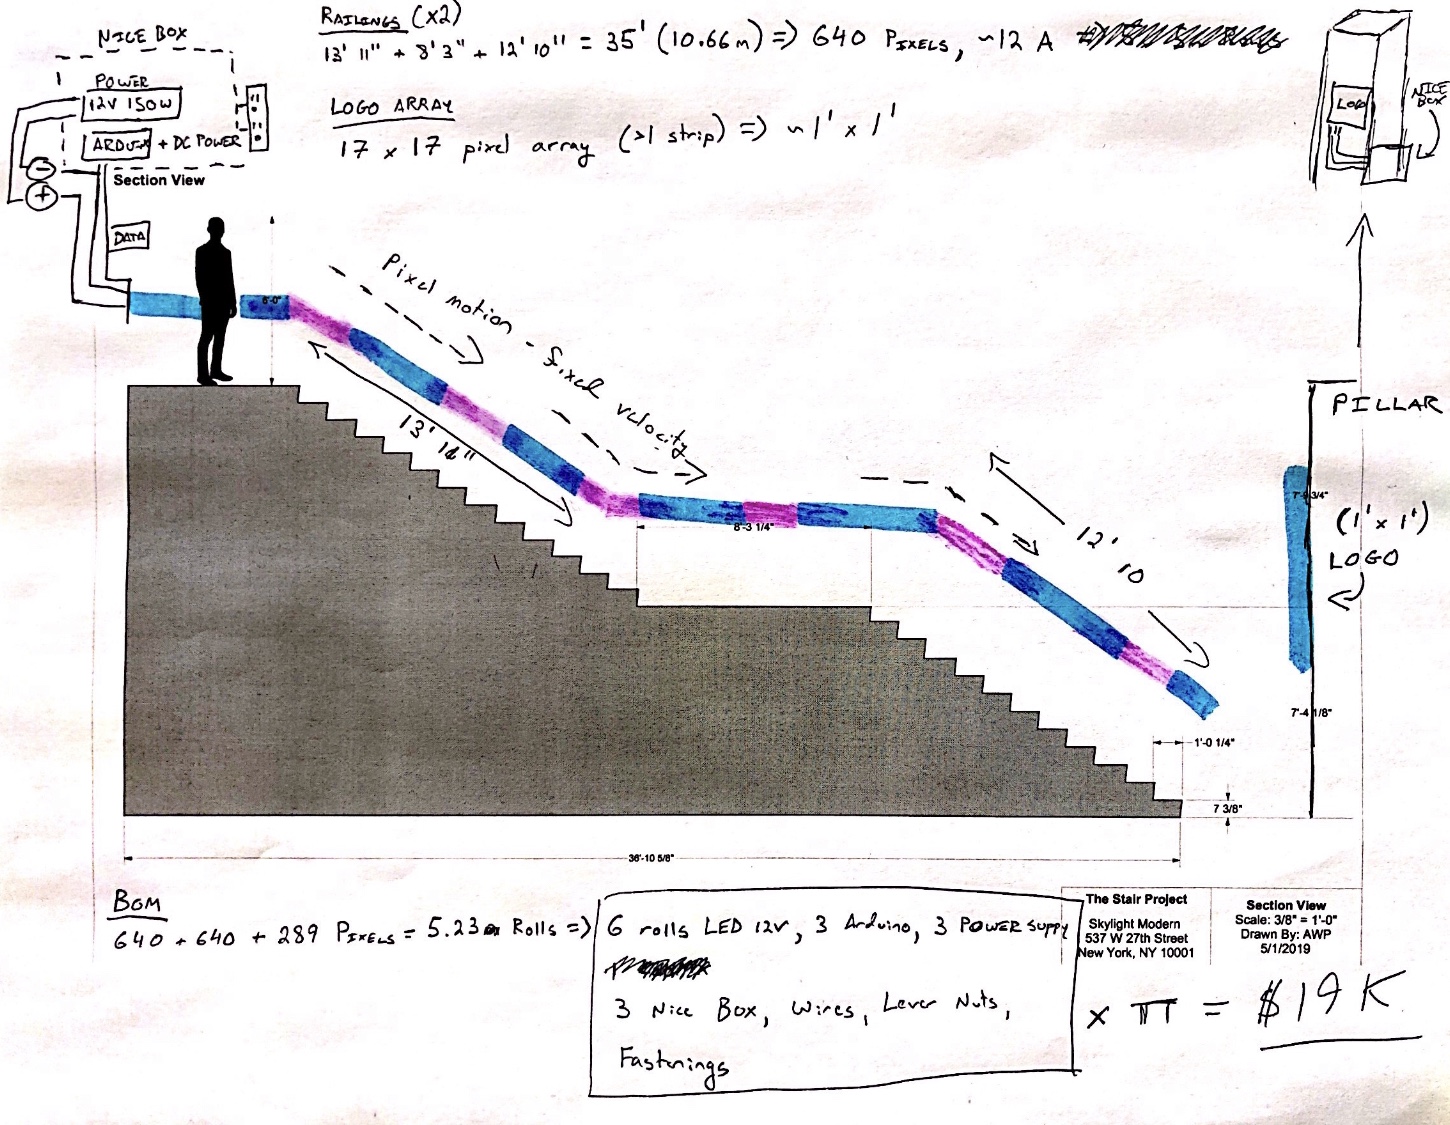 RAILINGS (x2)
13' 11" + 8' 3" + 12' 10" = 35' (10.66m) => 640 PIXELS, ~12 A
NICE BOX
POWER
12V 150W
ARDUIN + DC POWER
LOGO ARRAY
17 x 17 pixel array (>1 strip) => ~1' x 1'
LOGO
NICE BOX
-
+
Section View
DATA
6'-0"
Pixel motion - fixed velocity
13' 11"
8'-3 1/4"
12' 10
PILLAR
7'-9 3/4"
(1' x 1')
LOGO
7'-4 1/8"
1'-0 1/4"
7 3/8"
36'-10 5/8"
BOM
640 + 640 + 289 PIXELS = 5.23 Rolls =>
6 rolls LED 12v, 3 Arduino, 3 POWER SUPPY
3 Nice Box, Wires, Lever Nuts,
Fastenings
The Stair Project
Skylight Modern
537 W 27th Street
New York, NY 10001
Section View
Scale: 3/8" = 1'-0"
Drawn By: AWP
5/1/2019
x π = $19K